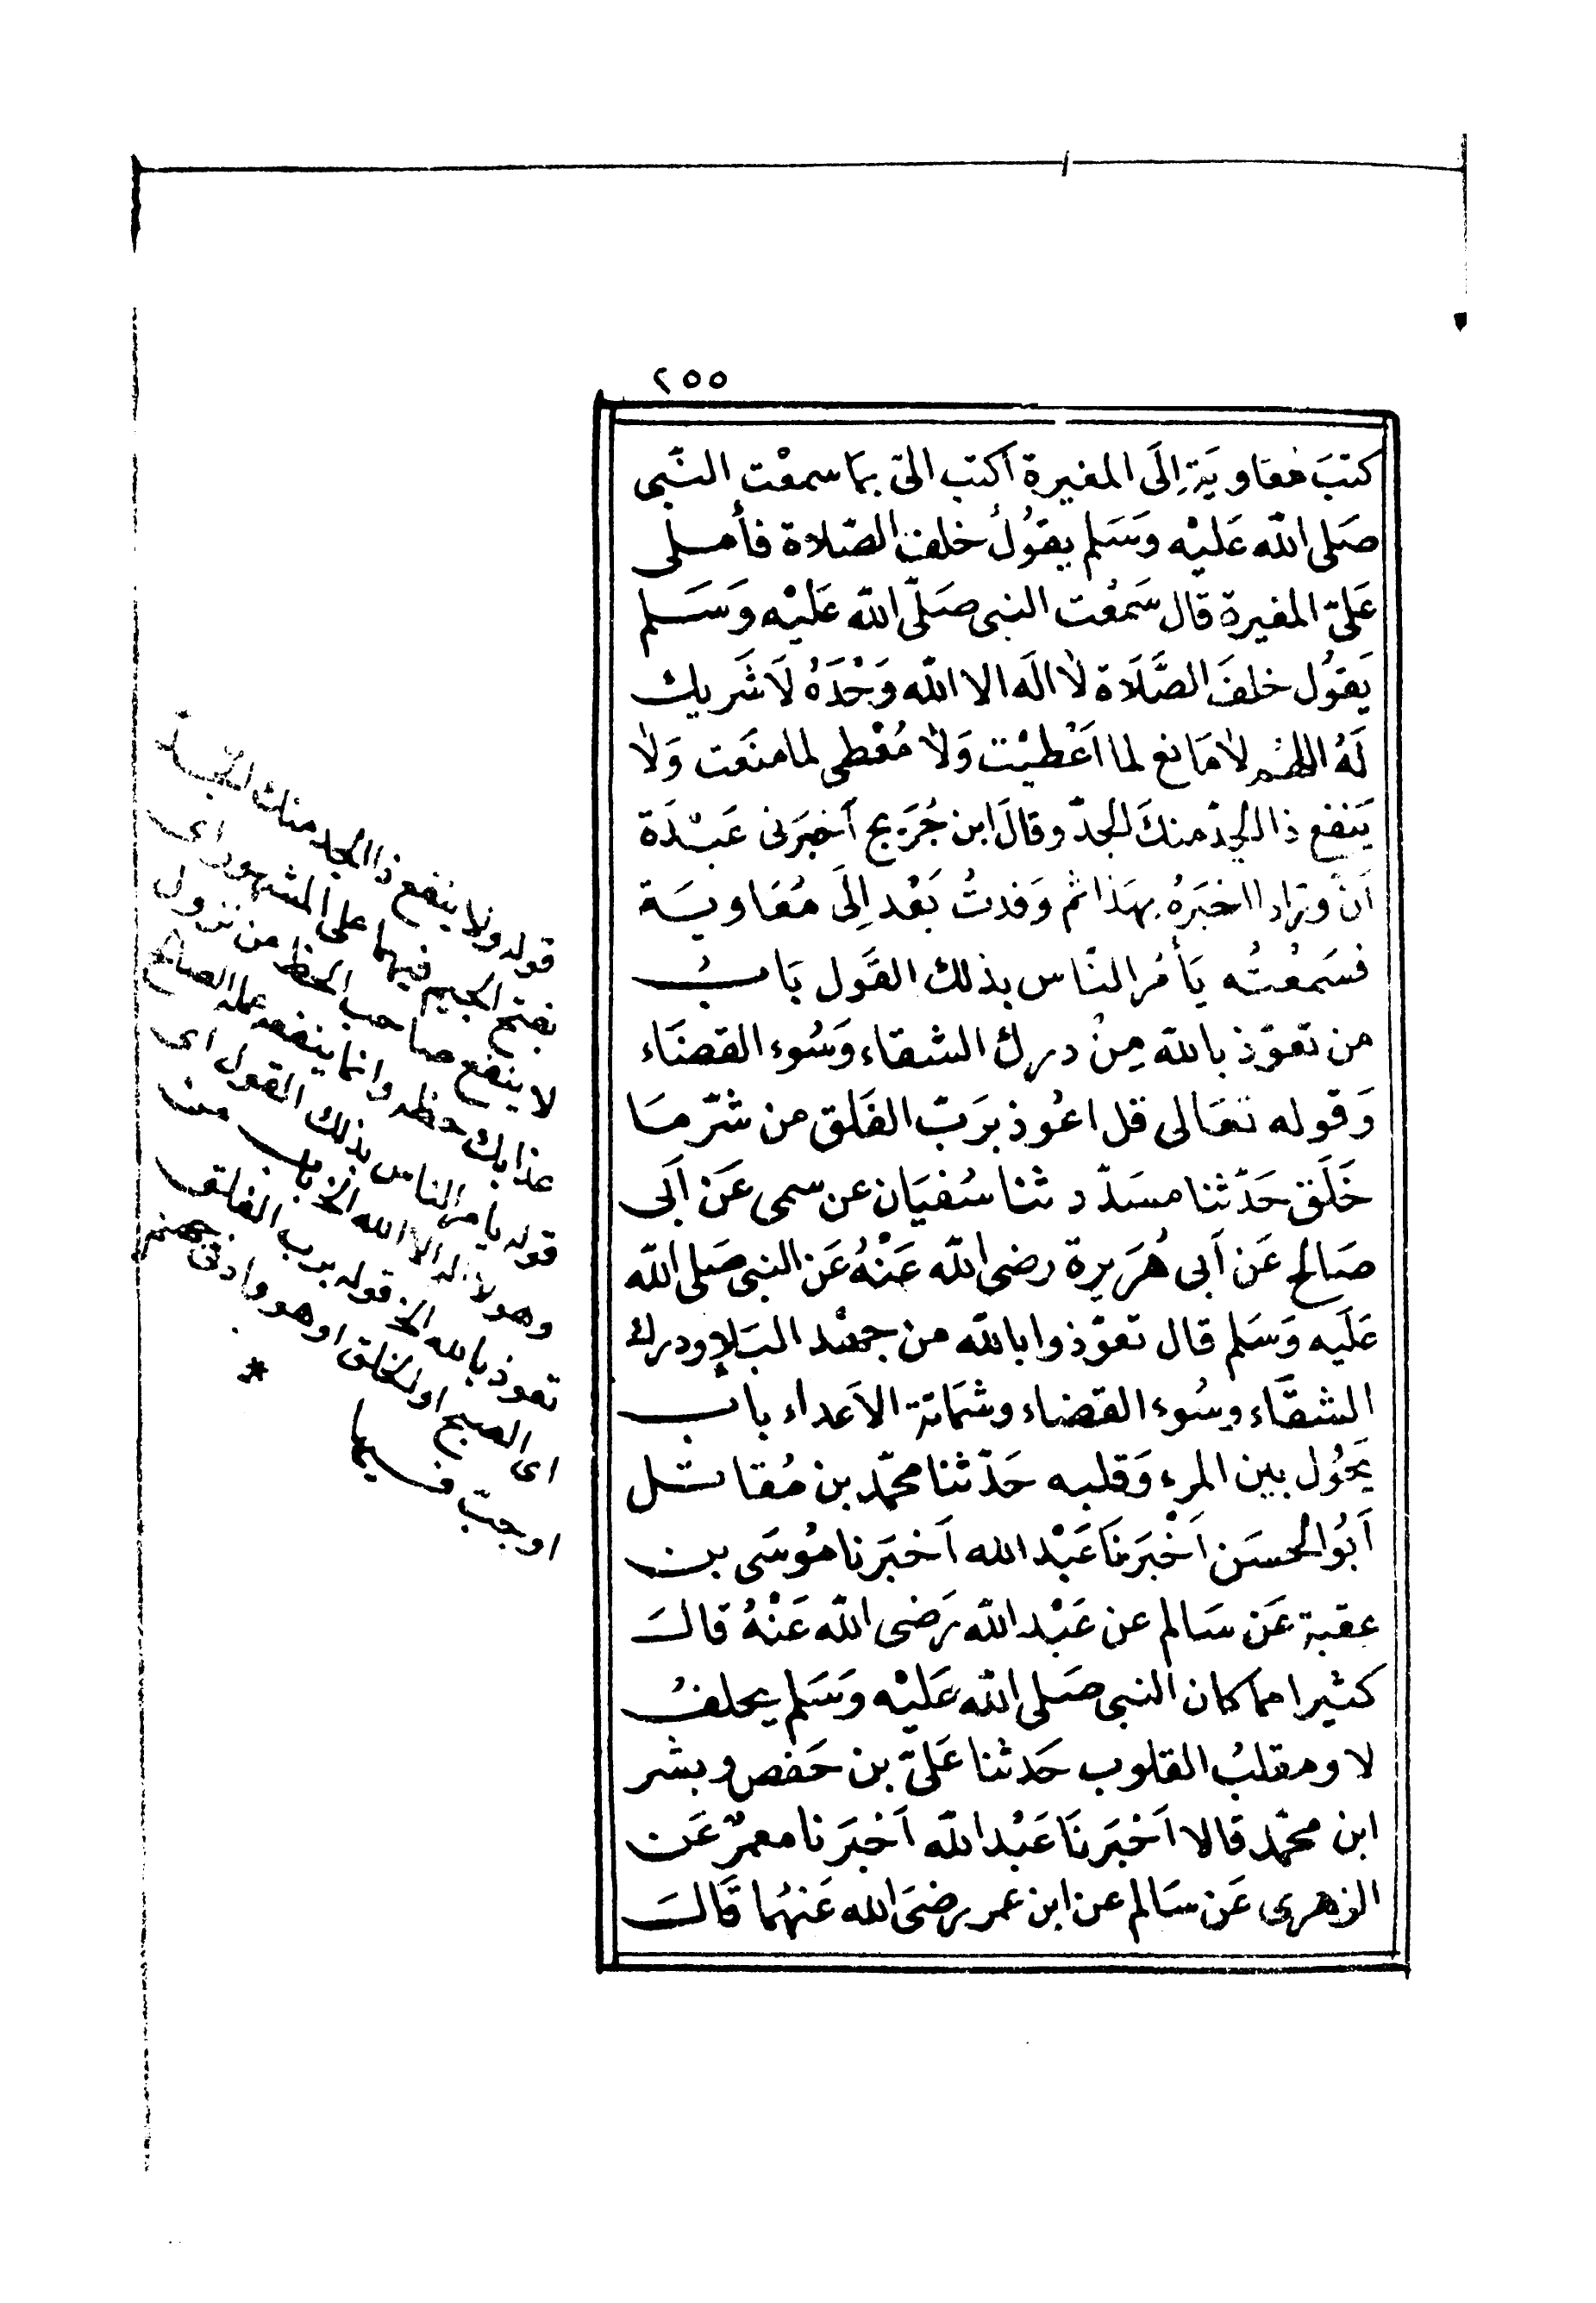 ٢٥٥
كتبَ معَاويَة إِلَى المغيرة اَكتب الىّ بمَا سمعْت النَّبى
صَلى اللّه عَليْه وَسَلم يقوُلُ خلف الصّلاة فأملى
عَلىّ المغيرة قال سَمعْت النبى صَلّى اللّه عَليْه وَسَلم
يَقوُل خلفَ الصَّلَاة لَا الَه الا اللّه وَحْدَهُ لَا شَريك
لَهُ اللهُم لَا مَانع لما اَعْطيْت وَلَا مُعْطى لما منَعت وَلَا
يَنفع ذا الجدّ منكَ الجدّ وقالَ ابن جُرَيج اَخبَرنى عَبْدَة
اَنّ ورّادا اخبَرَهُ بهَذا ثم وَفدتُ بَعْد اِلَى مُعَاويَة
فسَمعْتُه يَأمُر النّاس بذلك القَول بَابُ
من تعوّذ باللّه مِنْ درك الشقاء وَسُوء القضَاء
وَقوله تعَالى قل اعُوذ برَبّ الفَلق من شرّ مَا
خَلَق حَدّثنا مسَدّد ثنا سُفيَان عن سمى عَن اَبى
صَالح عَن اَبى هُرَيرة رضى اللّه عَنْهُ عَن النبى صَلى اللّه
عَلَيه وَسَلم قال تعوّذوا باللّه من جهْد البَلاء ودرك
الشقَّاء وسُوء القضاء وشمَاتة الاَعداء باب
يَحُول بين المرء وَقلبه حَدّثنا محمّد بن مُقاتل
اَبُو الحسَن اَخْبَرنَا عَبْد الله اَخبَرنا مُوسَى بن
عقبة عَن سَالم عن عَبْد اللّه رَضى اللّه عَنْهُ قالَ
كثيرا مما كان النبى صَلى اللّه عَليْه وَسَلم يحلفُ
لا ومقلبُ القلوب حَدثنا عَلىّ بن حَفص وبشر
ابن محمّد قالا اَخْبَرنَا عَبْد اللّه اَخْبَرنا معمرٌ عَن
الزهرى عَن سَالم عن ابن عمر رضىَ الله عَنهُما قَالَ
قوله ولا ينفع ذا الجد منك الجد
بفتح الجيم فيهما على المشهور اى
لا ينفع صاحب الحظ من نزول
عذابك حظه وانما ينفعه عمله الصالح
قوله يامر الناس بذلك القول اى
وهو لا اله الا الله الخ باب من
تعوذ بالله الخ قوله برب الفلق
اى الصبح او الخلق او هو واد فى جهنم
او جبّ فيها
*